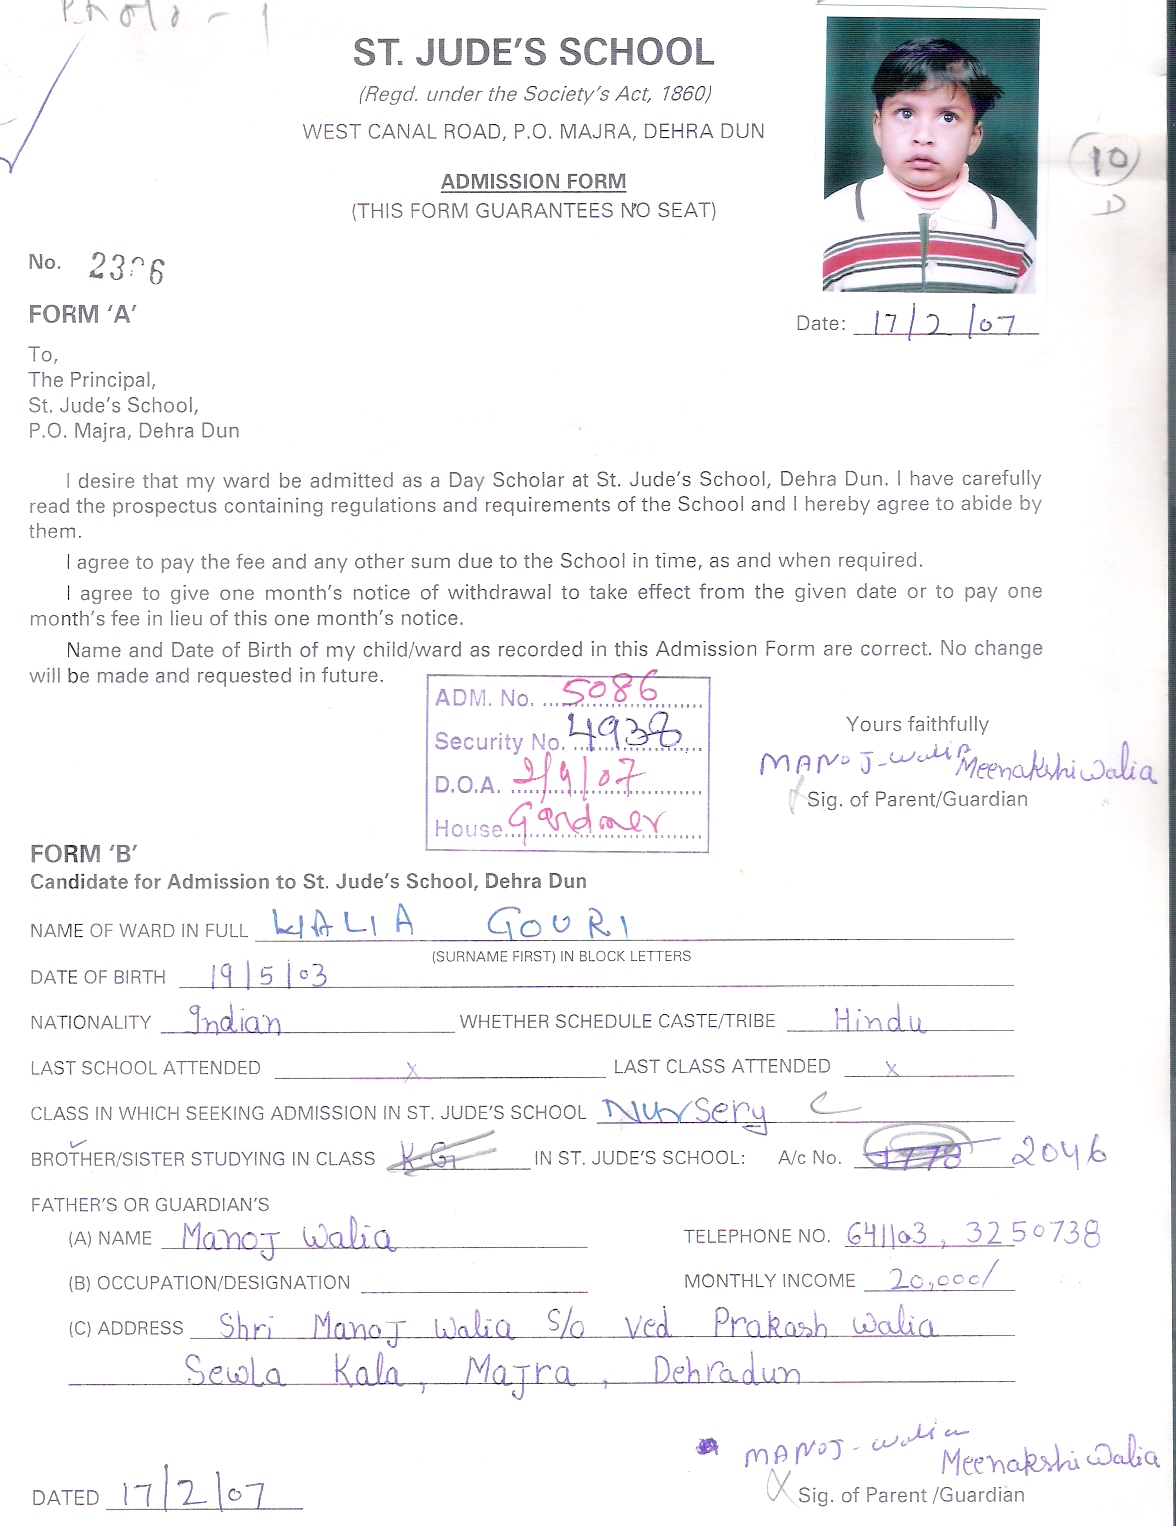 Photo - 1
ST. JUDE'S SCHOOL
(Regd. under the Society's Act, 1860)
WEST CANAL ROAD, P.O. MAJRA, DEHRA DUN
ADMISSION FORM
(THIS FORM GUARANTEES NO SEAT)
10
D
No.
FORM 'A'
Date: 17/2/07
To,
The Principal,
St. Jude's School,
P.O. Majra, Dehra Dun
I desire that my ward be admitted as a Day Scholar at St. Jude's School, Dehra Dun. I have carefully
read the prospectus containing regulations and requirements of the School and I hereby agree to abide by
them.
I agree to pay the fee and any other sum due to the School in time, as and when required.
I agree to give one month's notice of withdrawal to take effect from the given date or to pay one
month's fee in lieu of this one month's notice.
Name and Date of Birth of my child/ward as recorded in this Admission Form are correct. No change
will be made and requested in future.
ADM. No. 5086
Security No. 4938
D.O.A. 2/4/07
House Gardner
Yours faithfully
MANOJ-walia Meenakshi Walia
Sig. of Parent/Guardian
FORM 'B'
Candidate for Admission to St. Jude's School, Dehra Dun
NAME OF WARD IN FULL WALIA GOURI
(SURNAME FIRST) IN BLOCK LETTERS
DATE OF BIRTH 19/5/03
NATIONALITY Indian WHETHER SCHEDULE CASTE/TRIBE Hindu
LAST SCHOOL ATTENDED x LAST CLASS ATTENDED x
CLASS IN WHICH SEEKING ADMISSION IN ST. JUDE'S SCHOOL Nursery C
BROTHER/SISTER STUDYING IN CLASS K.G IN ST. JUDE'S SCHOOL: A/c No. 2046
FATHER'S OR GUARDIAN'S
(A) NAME Manoj Walia TELEPHONE NO. 641103, 3250738
(B) OCCUPATION/DESIGNATION MONTHLY INCOME 20,000/
(C) ADDRESS Shri Manoj Walia S/o Ved Prakash Walia
Sewla Kala, Majra, Dehradun
MANOJ-walia Meenakshi Walia
DATED 17/2/07 Sig. of Parent /Guardian